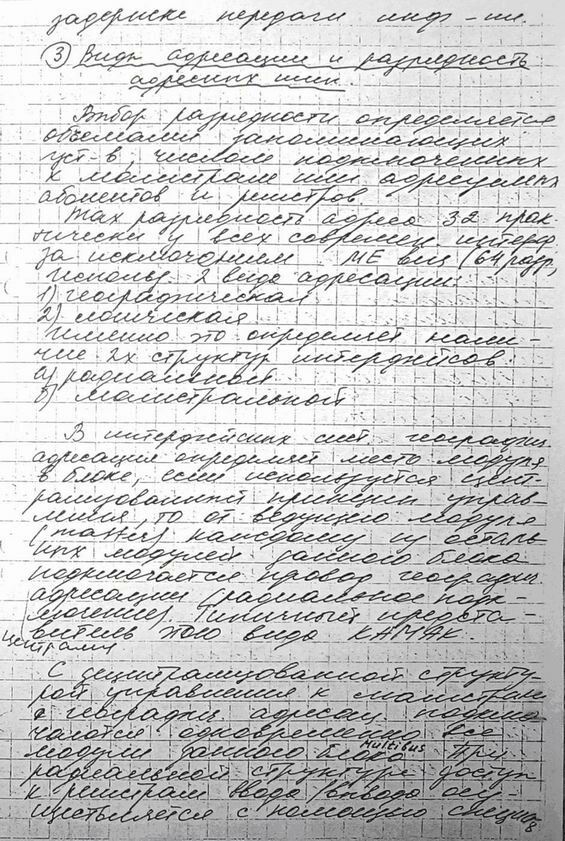 задержке передачи инф-ии.
③ Виды адресации и разрядность
адресных шин.
Выбор разрядности определяется
объемами запоминающих
уст-в, числом подключенных
к магистрали или адресуемых
абонентов и регистров
Max разрядность адреса 32 прак-
тически у всех современ. интерф.
за исключением (64 разр,
использ. 2 вида адресации:
1) географическая
2) логическая
именно это определяет нали-
чие 2х структур интерфейсов:
а) радиальной
б) магистральной
В интерфейсных сист. географич.
адресация определяет место модуля
в блоке, если используется цент-
рализованный принцип управ-
ления, то от ведущего модуля
(master) каждому из осталь-
ных модулей данного блока
подключается провод географич.
адресации (радиальное подк-
лючение). Типичный предста-
витель этого вида КАМАК.
централиз
С децентрализованной структу-
рой управления к магистрали
с географич. адресац. подклю-
чаются одновременно все
модули данного блока Multibus При
радиальной структуре доступ
к регистрам ввода/вывода осу-
ществляется с помощью специа
8